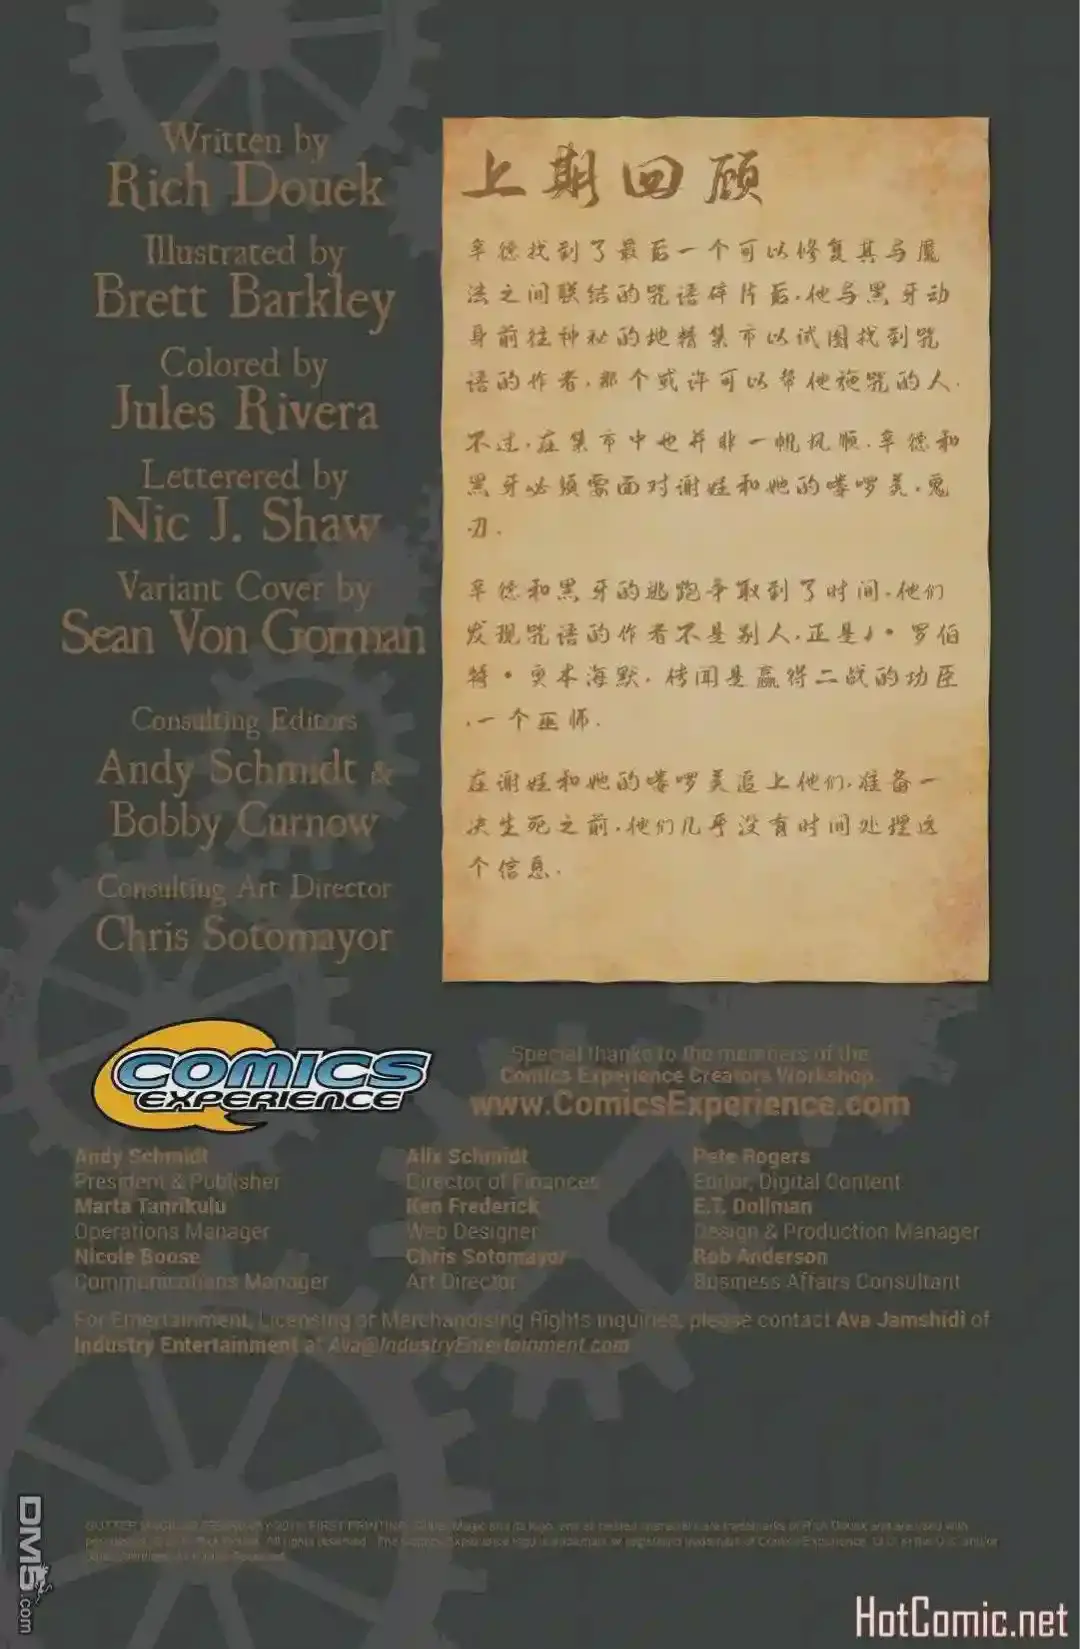 Written by
Rich Douek
Illustrated by
Brett Barkley
Colored by
Jules Rivera
Letterered by
Nic J. Shaw
Variant Cover by
Sean Von Gorman
Consulting Editors
Andy Schmidt &
Bobby Curnow
Consulting Art Director
Chris Sotomayor
上期回顾
辛德找到了最后一个可以修复其与魔
法之间联结的咒语碎片后，他与黑牙动
身前往神秘的地精集市以试图找到咒
语的作者，那个或许可以帮他施咒的人.
不过，在集市中也并非一帆风顺.辛德和
黑牙必须要面对谢娃和她的喽啰美，鬼
刃.
辛德和黑牙的逃跑争取到了时间，他们
发现咒语的作者不是别人，正是J·罗伯
特·奥本海默.传闻是赢得二战的功臣
，一个巫师.
在谢娃和她的喽啰美追上他们，准备一
决生死之前，他们几乎没有时间处理这
个信息.
COMICS
EXPERIENCE
Special thanks to the members of the
Comics Experience Creators Workshop.
www.ComicsExperience.com
Andy Schmidt
President & Publisher
Marta Tanrikulu
Operations Manager
Nicole Boose
Communications Manager
Alix Schmidt
Director of Finances
Ken Frederick
Web Designer
Chris Sotomayor
Art Director
Pete Rogers
Editor, Digital Content
E.T. Dollman
Design & Production Manager
Rob Anderson
Business Affairs Consultant
For Entertainment, Licensing or Merchandising Rights inquiries, please contact Ava Jamshidi of
Industry Entertainment at Ava@IndustryEntertainment.com
DM5.com
HotComic.net